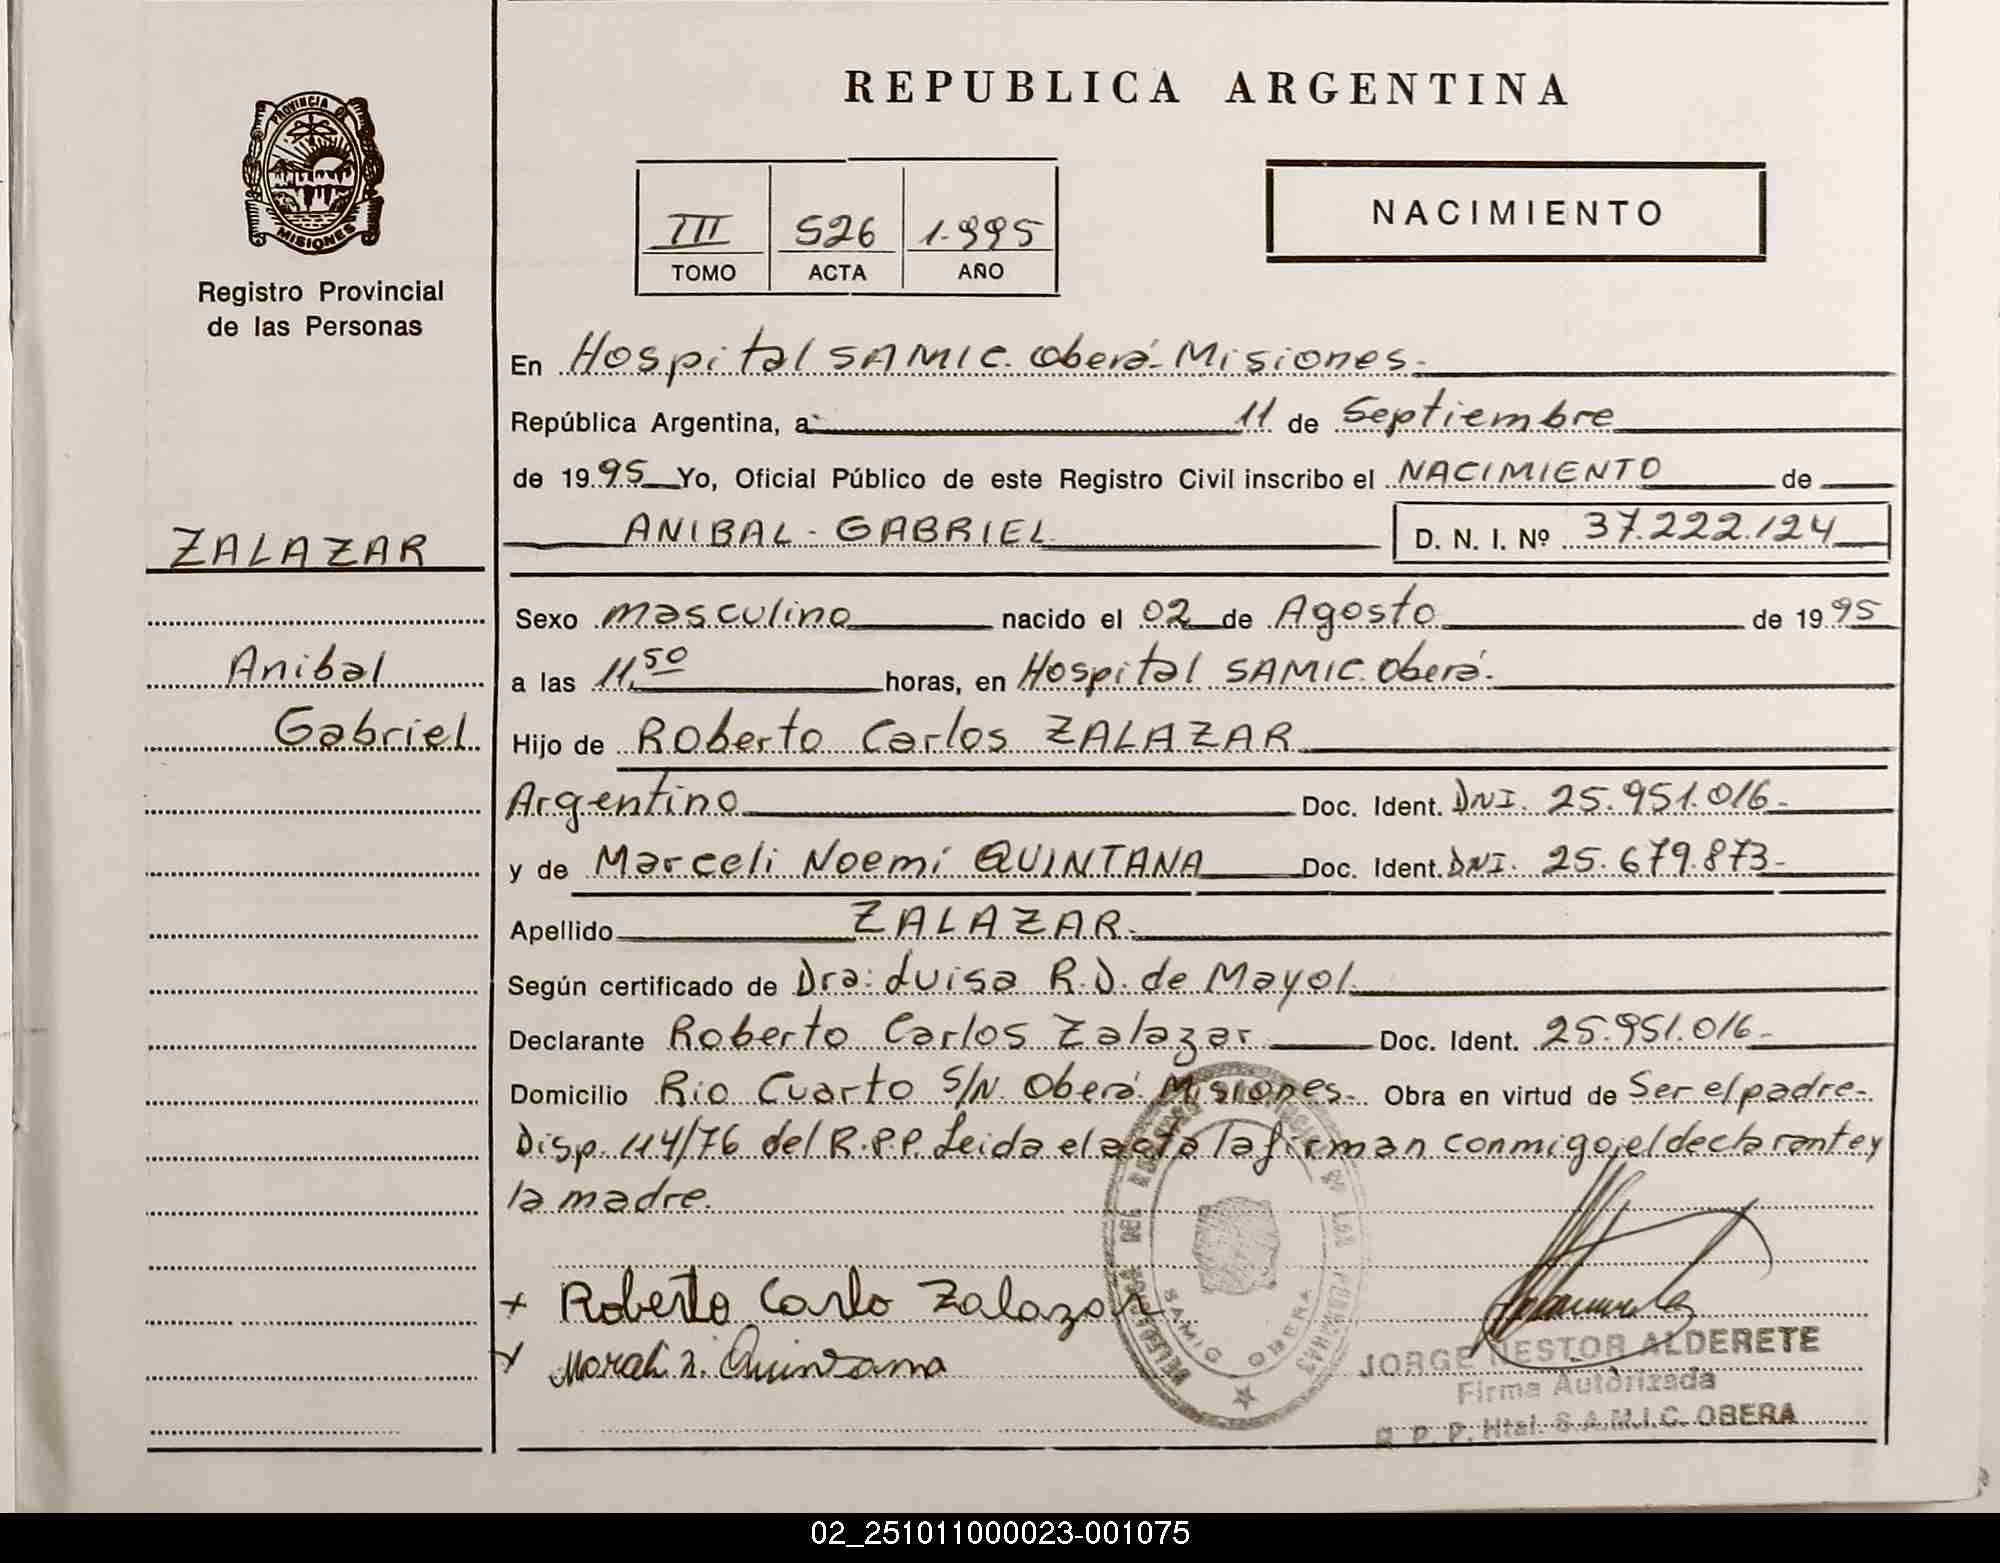 REPUBLICA ARGENTINA
PROVINCIA DE
MISIONES
Registro Provincial
de las Personas
III 526 1.995
TOMO ACTA AÑO
NACIMIENTO
En Hospital SAMIC. Oberá- Misiones.
República Argentina, a 11 de Septiembre
de 19 95 Yo, Oficial Público de este Registro Civil inscribo el NACIMIENTO de
ANIBAL - GABRIEL D. N. I. Nº 37.222.124
ZALAZAR
Anibal
Gabriel
Sexo masculino nacido el 02 de Agosto de 19 95
a las 11,50 horas, en Hospital SAMIC. Oberá.
Hijo de Roberto Carlos ZALAZAR
Argentino Doc. Ident. DNI. 25.951.016-
y de Marceli Noemí QUINTANA Doc. Ident. DNI. 25.679.873-
Apellido ZALAZAR.
Según certificado de Dra: Luisa R.D. de Mayol.
Declarante Roberto Carlos Zalazar Doc. Ident. 25.951.016-
Domicilio Rio Cuarto S/N. Oberá Misiones- Obra en virtud de Ser el padre-
Disp. 114/76 del R.P.P. Leida el acta la firman conmigo, el declarante y
la madre.
+ Roberto Carlo Zalazar
SAMIC OBERA
JORGE NESTOR ALDERETE
Firma Autorizada
R. P. P. Htal. S.A.M.I.C. OBERA
02_251011000023-001075